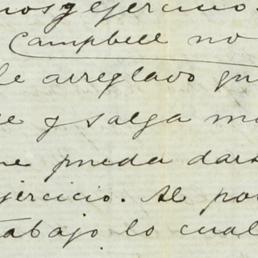 nos y ejercicio.
Campbell no
le arreglado
e y salga
me pueda dars
ejercicio. Al po
trabajo lo cual